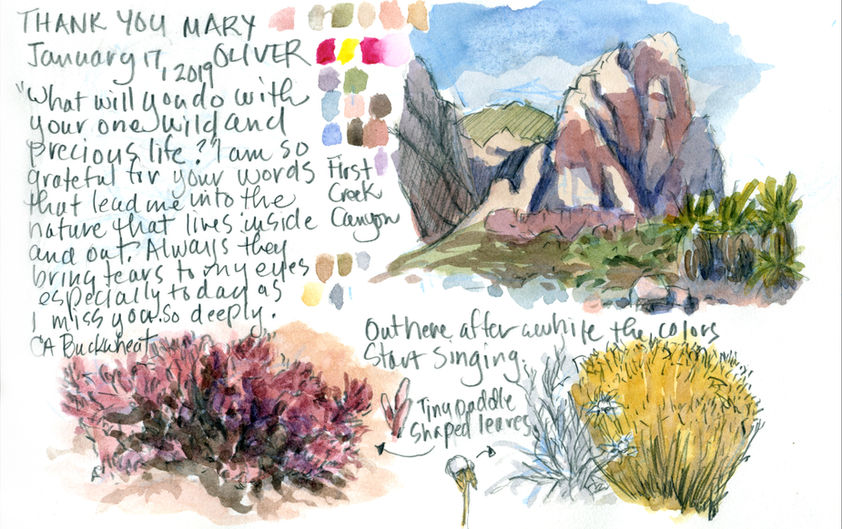 THANK YOU MARY
OLIVER
January 17, 2019
"What will you do with
your one wild and
precious life?" I am so
grateful for your words
that lead me into the
nature that lives inside
and out. Always they
bring tears to my eyes
especially today as
I miss you so deeply.
CA Buckwheat
First
Creek
Canyon
Out here after awhile the colors
Start Singing.
Tiny paddle
shaped leaves